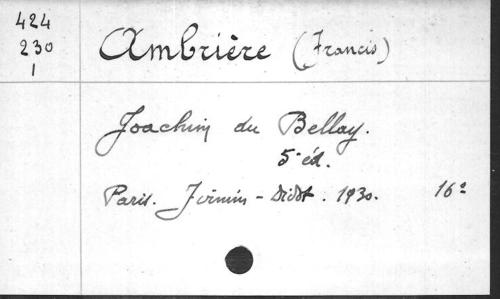 424
230
1
Ambrière (Francis)
Joachim du Bellay.
5e éd.
Paris. Firmin-Didot. 1930. 16°